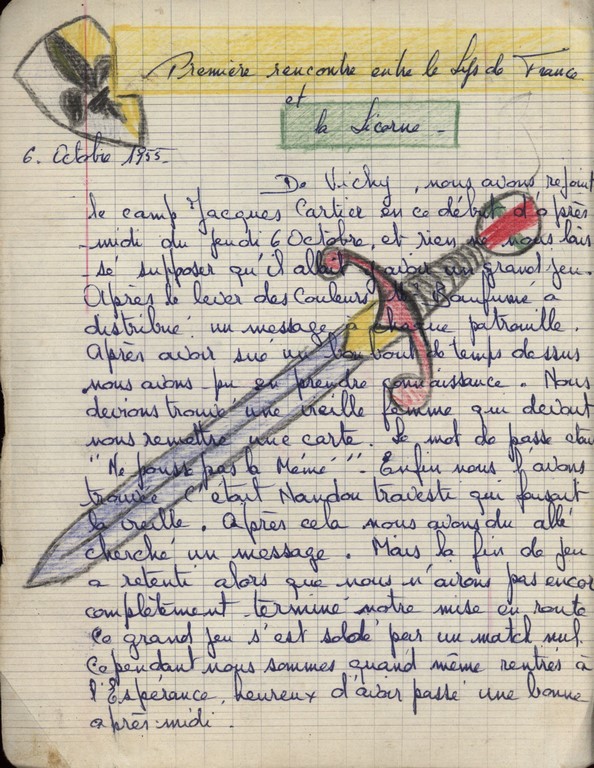 Première rencontre entre le Lys de France
et
la Licorne -
6. Octobre 1955.
De Vichy, nous avons rejoint
le camp Jacques Cartier en ce début d'après
-midi du jeudi 6 Octobre, et rien ne nous lais
-sé supposer qu'il allait y avoir un grand jeu.
Après le lever des Couleurs Mr Baufumé a
distribué un message à chaque patrouille.
Après avoir sué un bon bout de temps dessus
nous avons pu en prendre connaissance. Nous
devions trouvé une vieille femme qui devait
nous remettre une carte. Le mot de passe était
"Ne pousse pas la Mémé". Enfin nous l'avons
trouvée c'était Nandou travesti qui faisait
la vieille. Après cela nous avons du allé
cherché un message. Mais la fin de jeu
a retenti alors que nous n'avions pas encor
complètement terminé notre mise en route
Ce grand jeu s'est soldé par un match nul.
Cependant nous sommes quand même rentrés à
l'Espérance, heureux d'avoir passé une bonne
après-midi.